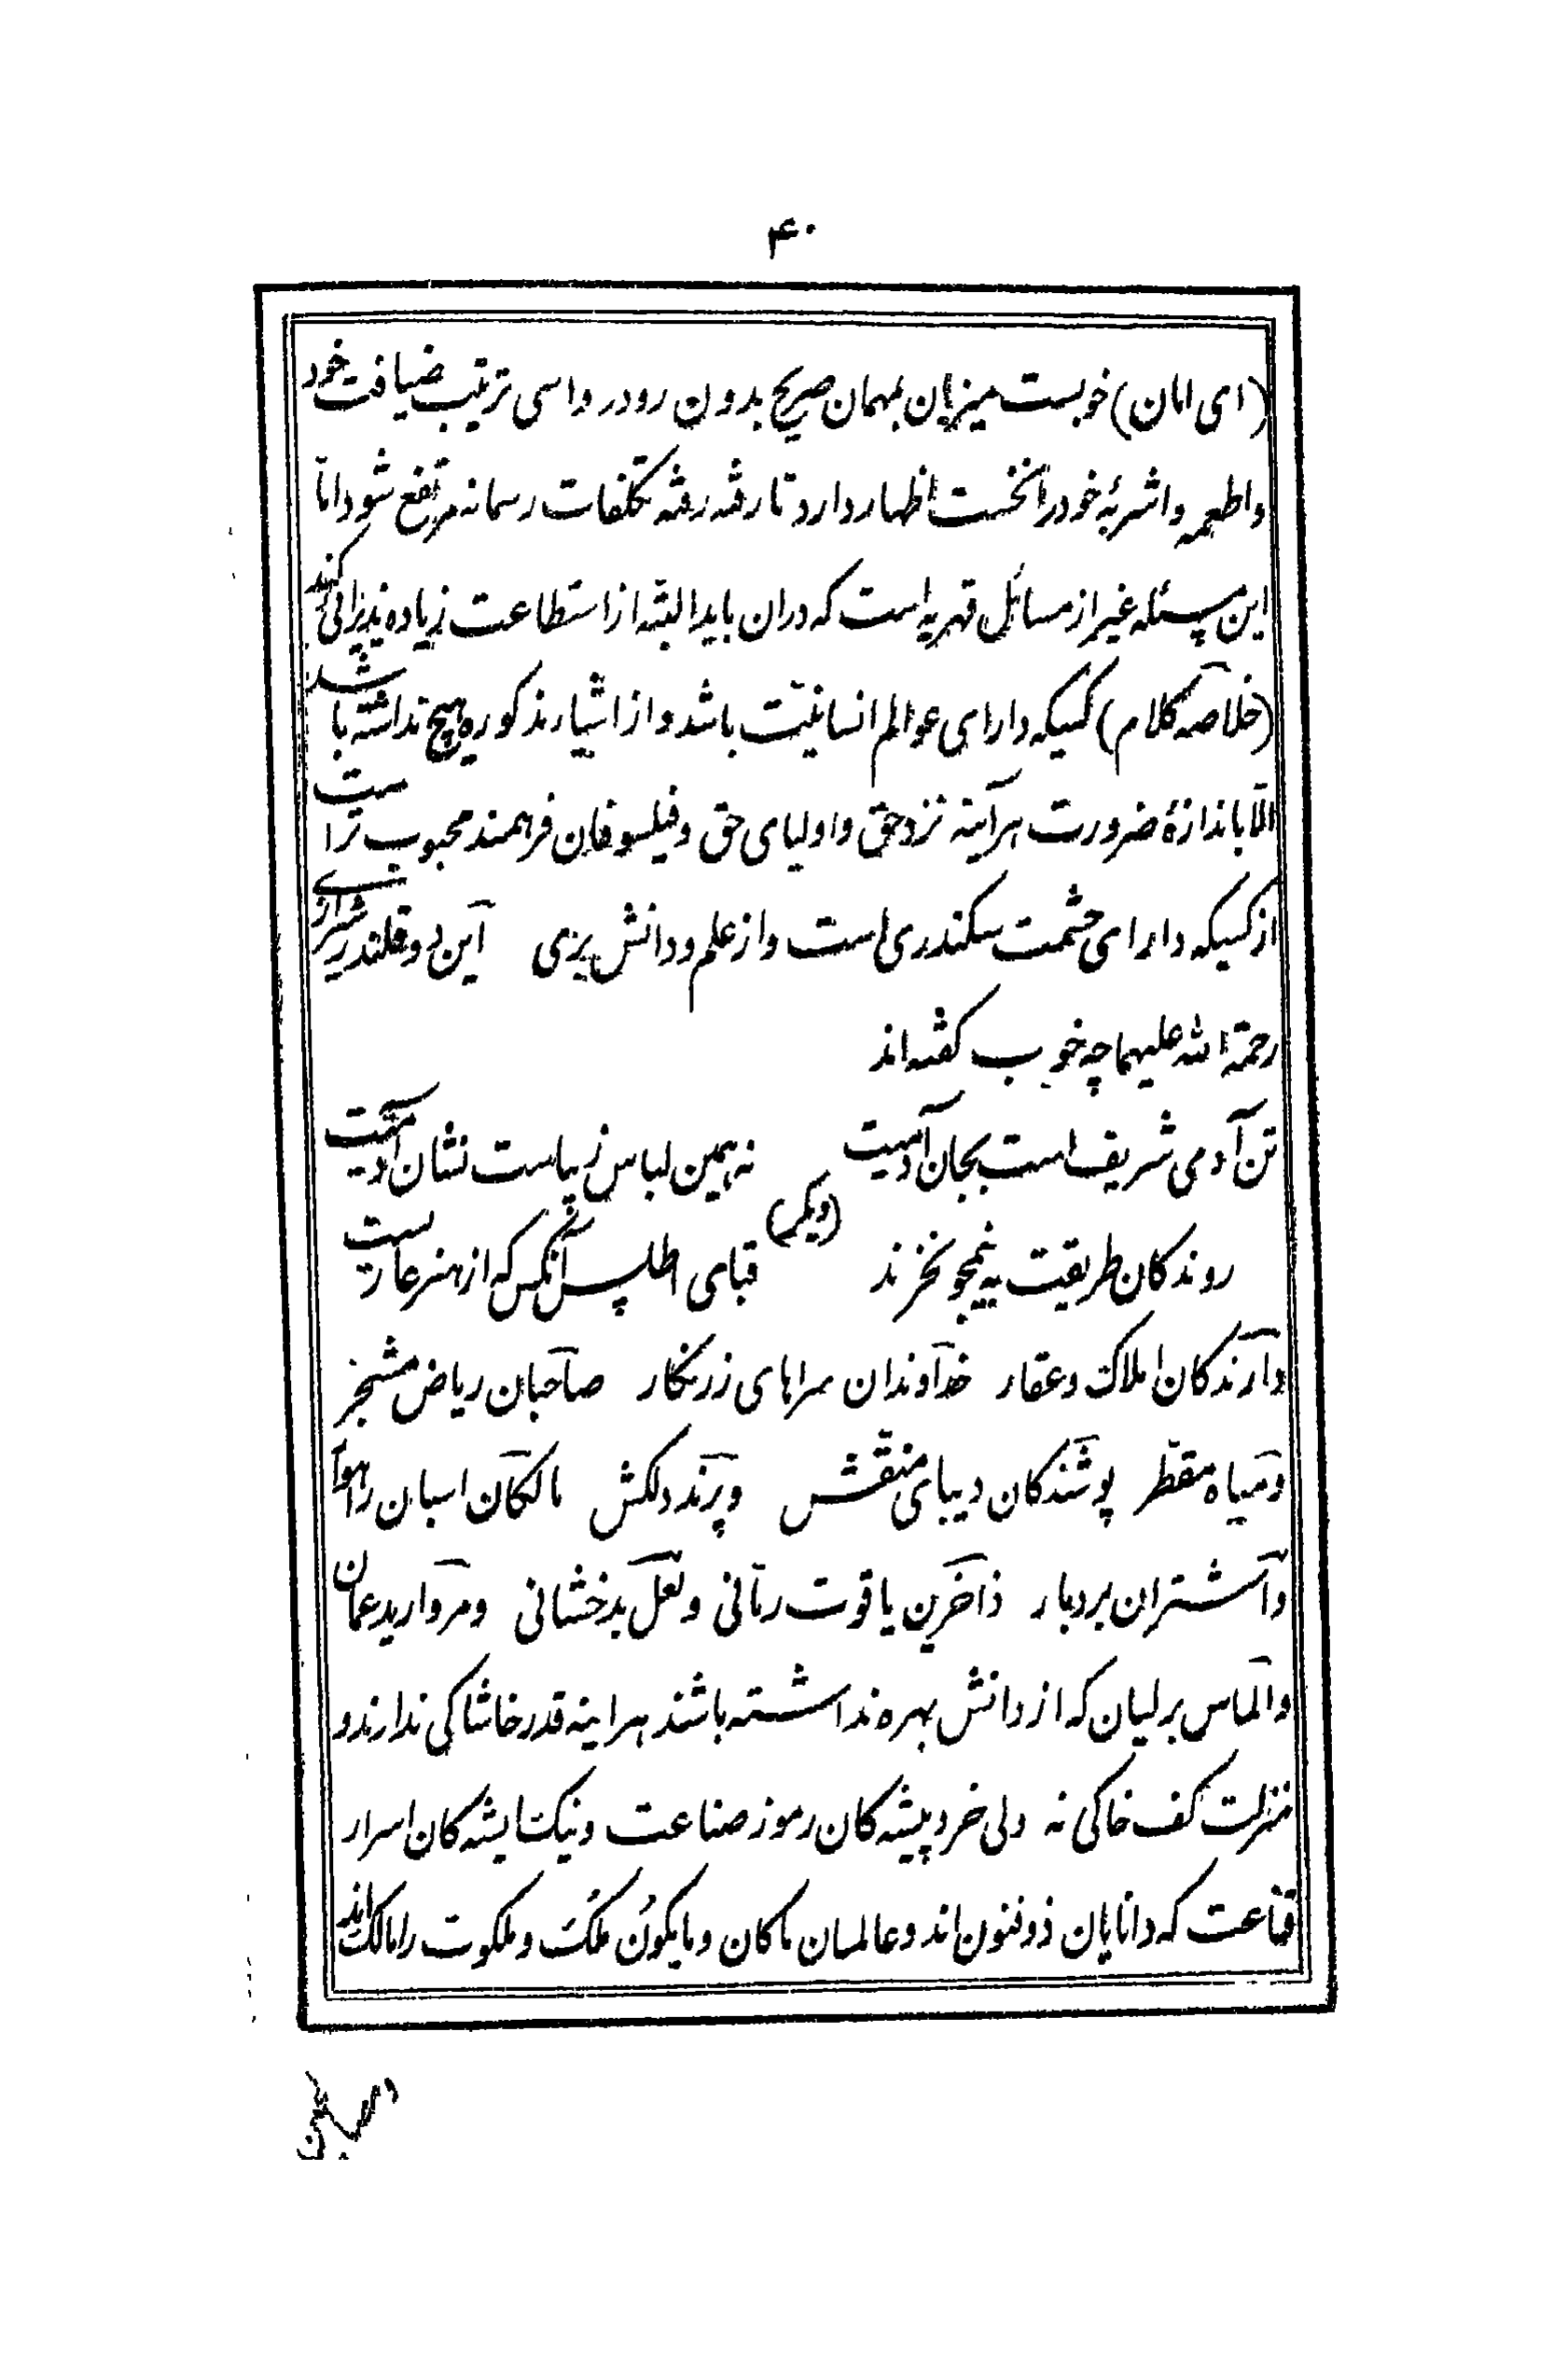 ۴۰
(ای امان) خوبست میزبان بمهمان صریح بدون رودرواسی ترتیب ضیافت خود
واطعمه واشربهٔ خود را نخست اظهار دارد تا رفته رفته تکلفات رسمانه مرتفع شود اما
این مسئله غیر از مسائل قهریه است که در ان باید البته از استطاعت زیاده پذیرائی کند
(خلاصه کلام) کسیکه دارای عوالم انسانیّت باشد و از اشیاء مذکوره هیچ نداشته باشد
الّا باندازهٔ ضرورت هرآینه نزد حق و اولیای حق و فیلسوفان فرهمند محبوب تر است
از کسیکه دارای حشمت سکندری است و از علم و دانش بری این دو قلندر
رحمة الله علیهما چه خوب گفته اند
تن آدمی شریف است بجان آدمیت نه همین لباس زیباست نشان آدمیت
(دیگر)
روندکان طریقت به نیمجو نخرند قبای اطلس آنکس که از هنر عاریست
دارندکان املاک و عقار خداوندان سراهای زرنکار صاحبان ریاض مشجّر
و میاه مقطّر پوشندکان دیبای منقّش و پرند دلکش مالکان اسبان راهوار
و اشتران بردبار ذاخرین یاقوت رمّانی و لعل بدخشانی و مروارید عمان
و الماس برلیان که از دانش بهره نداشته باشند هراینه قدر خاشاکی ندارند و
منزلت کف خاکی نه ولی خردپیشه کان رموز صناعت و نیک‌اندیشه کان اسرار
قناعت که دانایان ذوفنون‌اند و عالمان ماکان و مایکون ملک و ملکوت را مالک اند